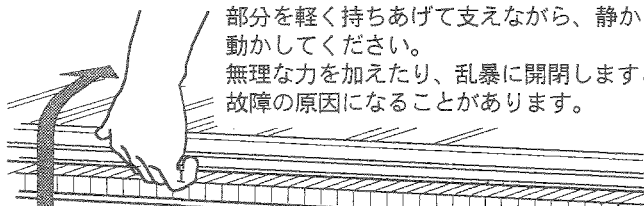 部分を軽く持ちあげて支えながら、静か
動かしてください。
無理な力を加えたり、乱暴に開閉します
故障の原因になることがあります。